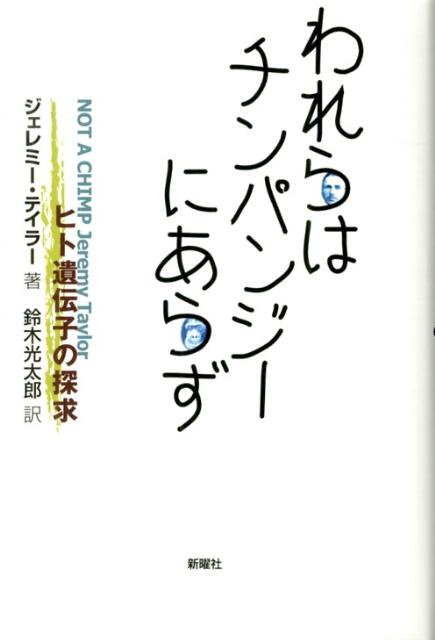 われらは
チンパンジー
にあらず
ヒト遺伝子の探求
NOT A CHIMP Jeremy Taylor
ジェレミー・テイラー 著 鈴木光太郎 訳
新曜社